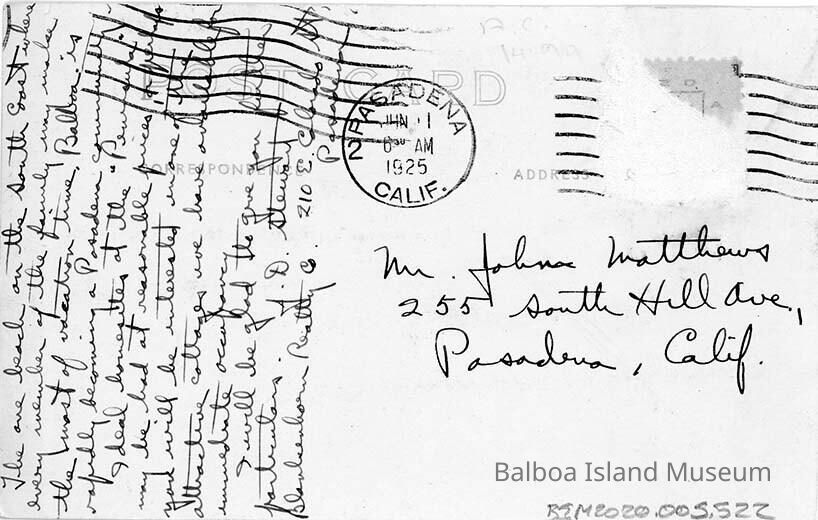 The one beach on the south coast where
every member of the family may make
the most of vacation time, Balboa is
rapidly becoming a Pasadena community
Ideal homesites at the "Peninsula"
may be had at reasonable prices, perhaps
you will be interested in one of the
attractive cottages we have available for
immediate occupancy.
I will be glad to give you further
particulars.
J. D.
Blankenhorn Realty Co. 210 E. Colorado St.
Pasadena
POST CARD
CORRESPONDENCE
ADDRESS
PASADENA
2
JUN 1
6 30 AM
1925
CALIF.
Mr. John Matthews
255 South Hill Ave,
Pasadena, Calif.
Balboa Island Museum
BIM2020.005.522